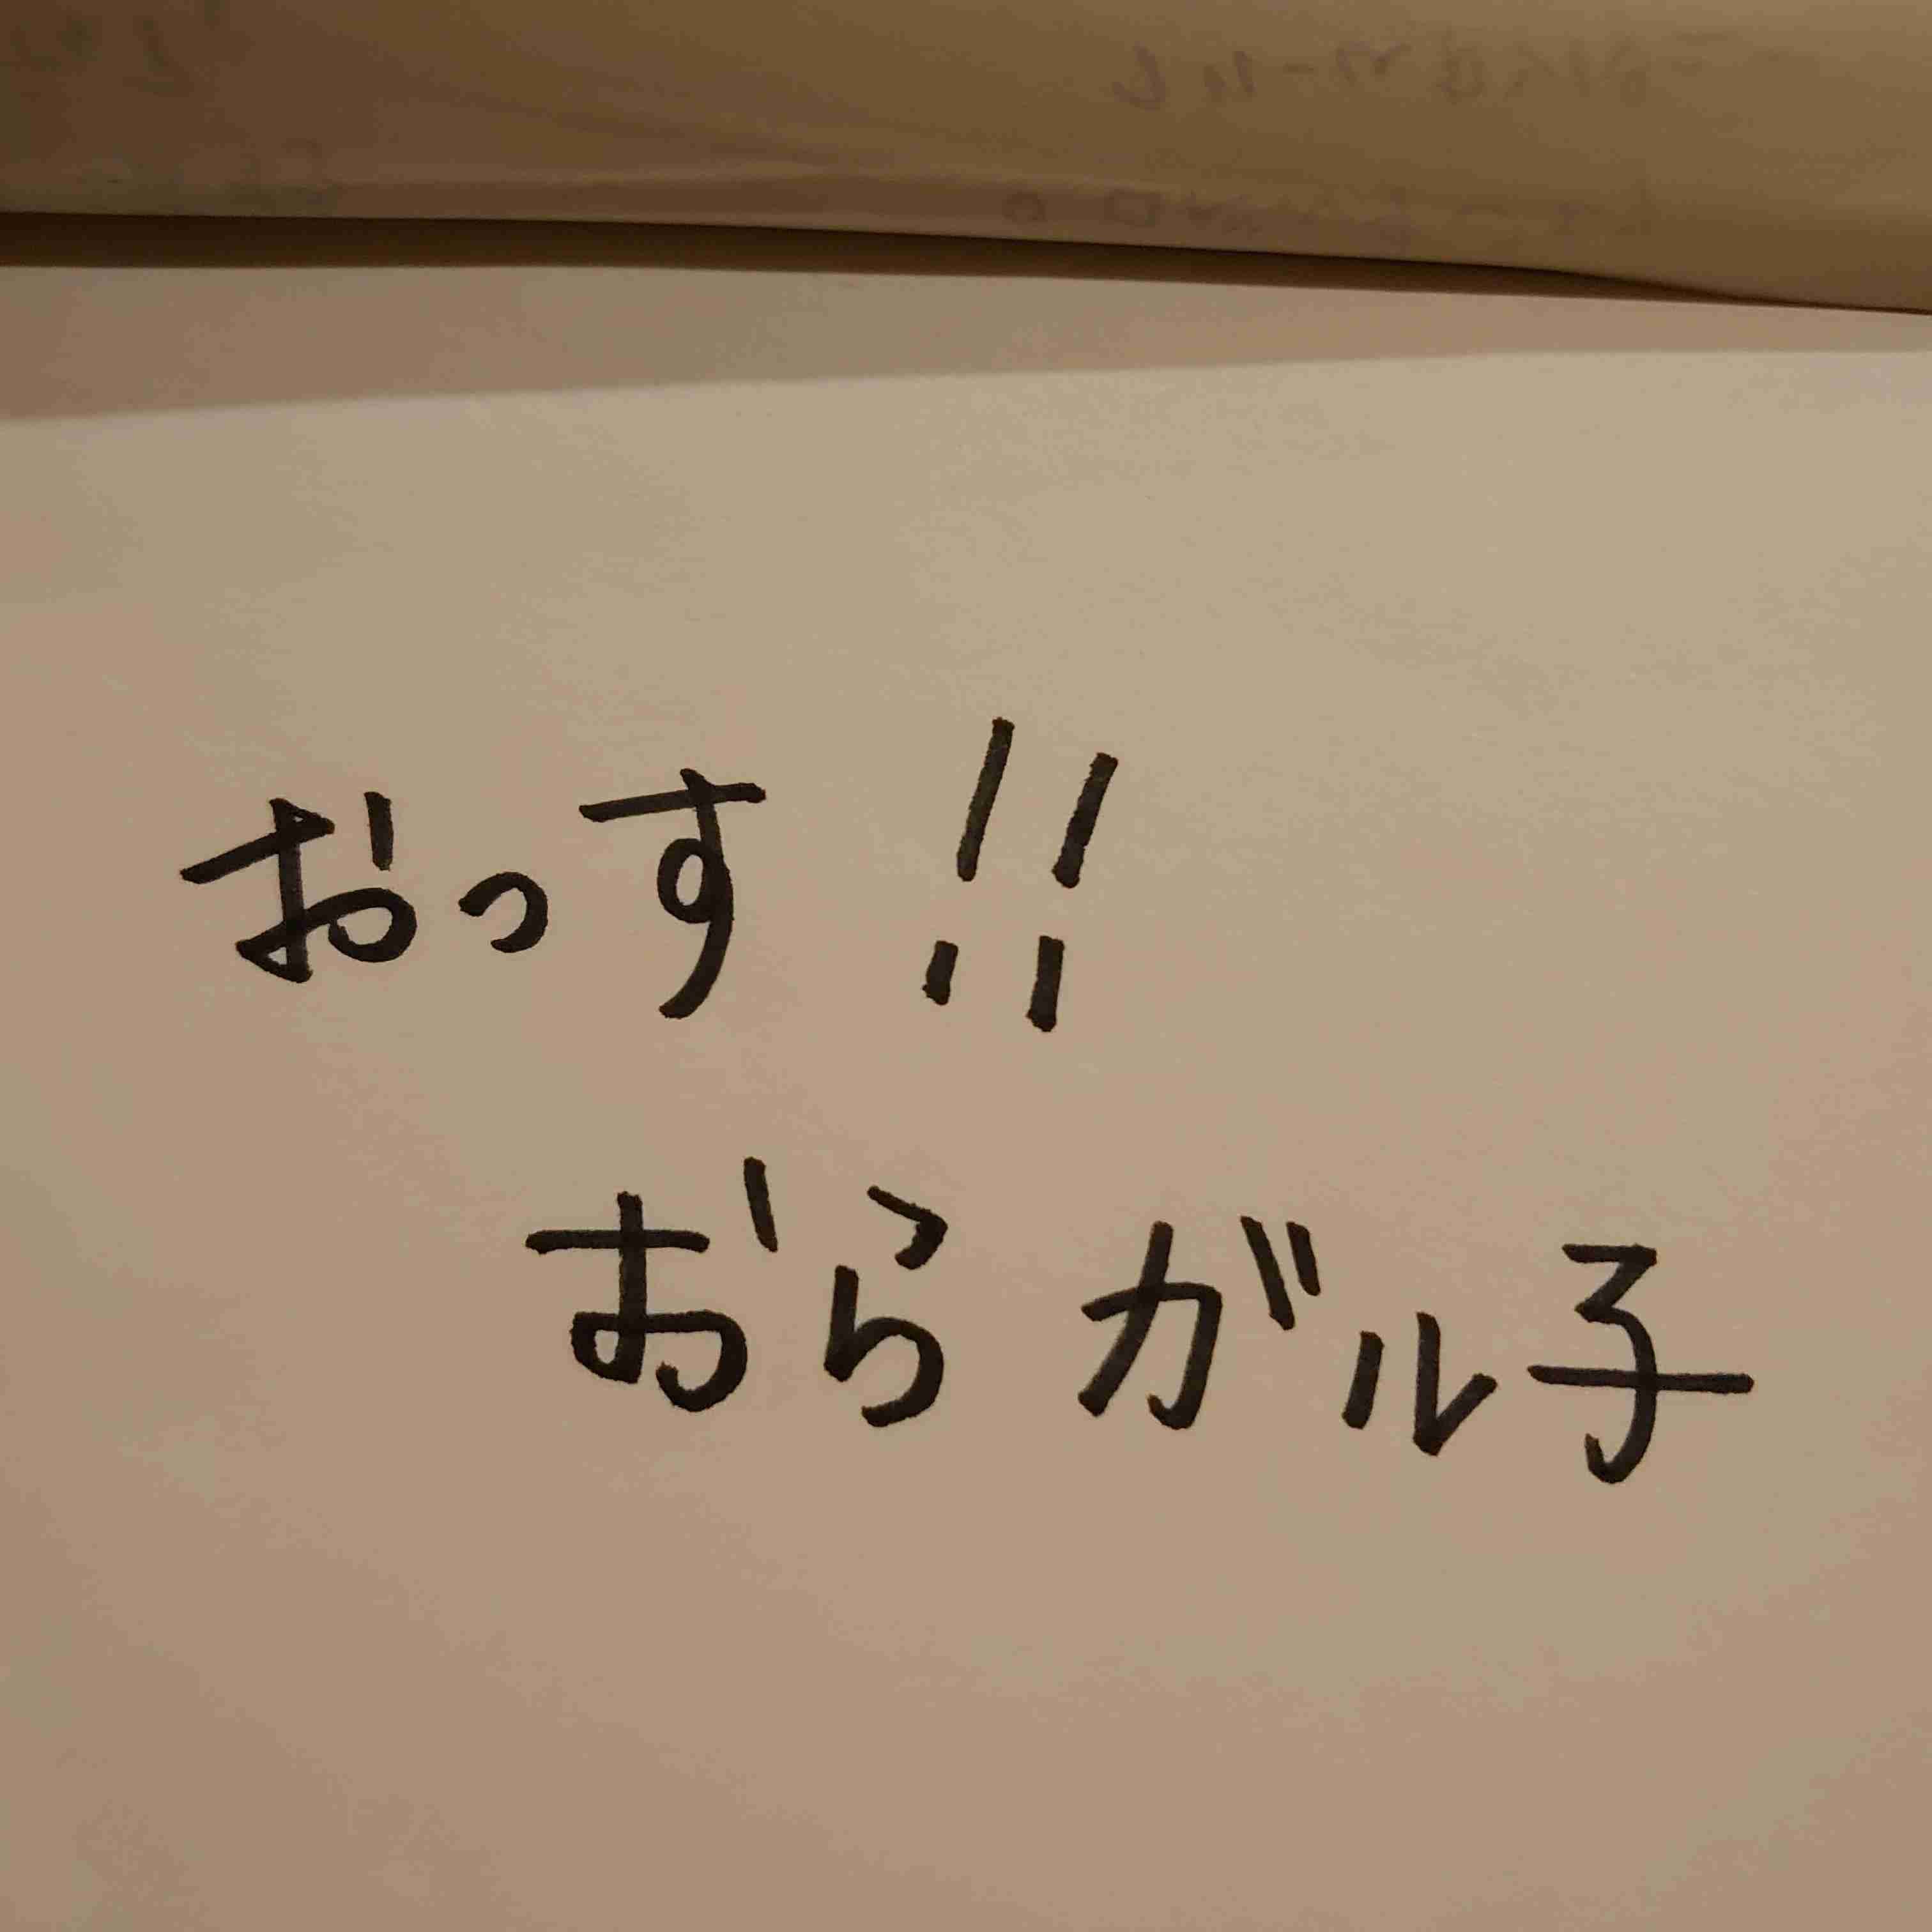 おっす!!
おらガル子